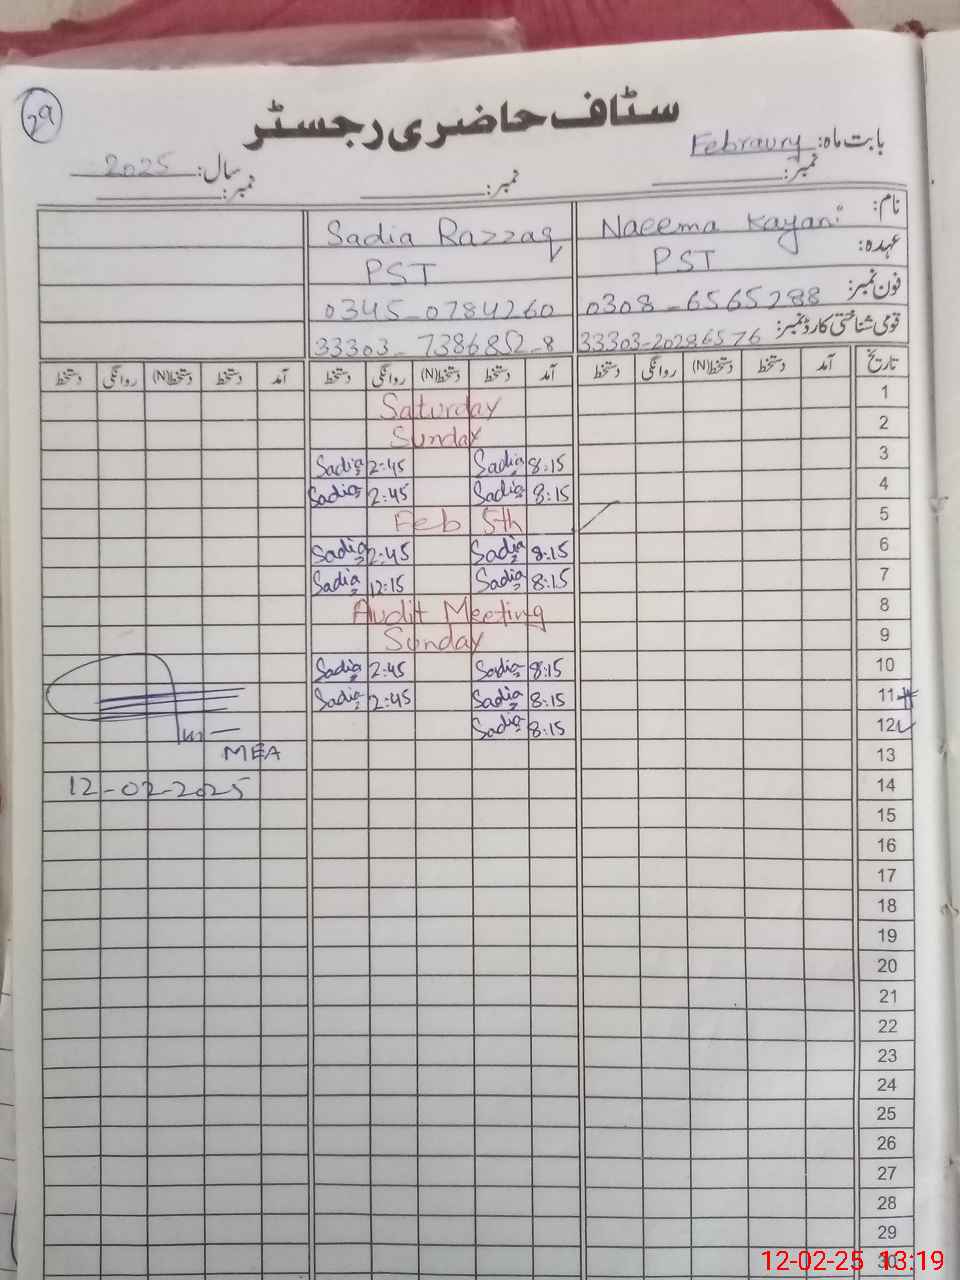 29
سٹاف حاضری رجسٹر
بابت ماہ: Febraury
سال: 2025
نمبر: نمبر: نمبر:
نام: Naeema Kayani Sadia Razzaq
عہدہ: PST PST
فون نمبر: 0308-6565288 0345-0784260
قومی شناختی کارڈ نمبر: 33303-20286576 33303-
تاریخ آمد دستخط دستخط(N) روانگی دستخط آمد دستخط دستخط(N) روانگی دستخط آمد دستخط دستخط(N) روانگی دستخط
1 Saturday
2 Sunday
3 8:15 Sadia 2:45 Sadia
4 8:15 Sadia 2:45 Sadia
5 Feb 5th
6 8:15 Sadia 2:45 Sadia
7 8:15 Sadia 12:15 Sadia
8 Audit Meeting
9 Sunday
10 8:15 Sadia 2:45 Sadia
11 8:15 Sadia 2:45 Sadia
12 8:15 Sadia
13 MEA
14 12-02-2025
15
16
17
18
19
20
21
22
23
24
25
26
27
28
29
30
12-02-25 13:19